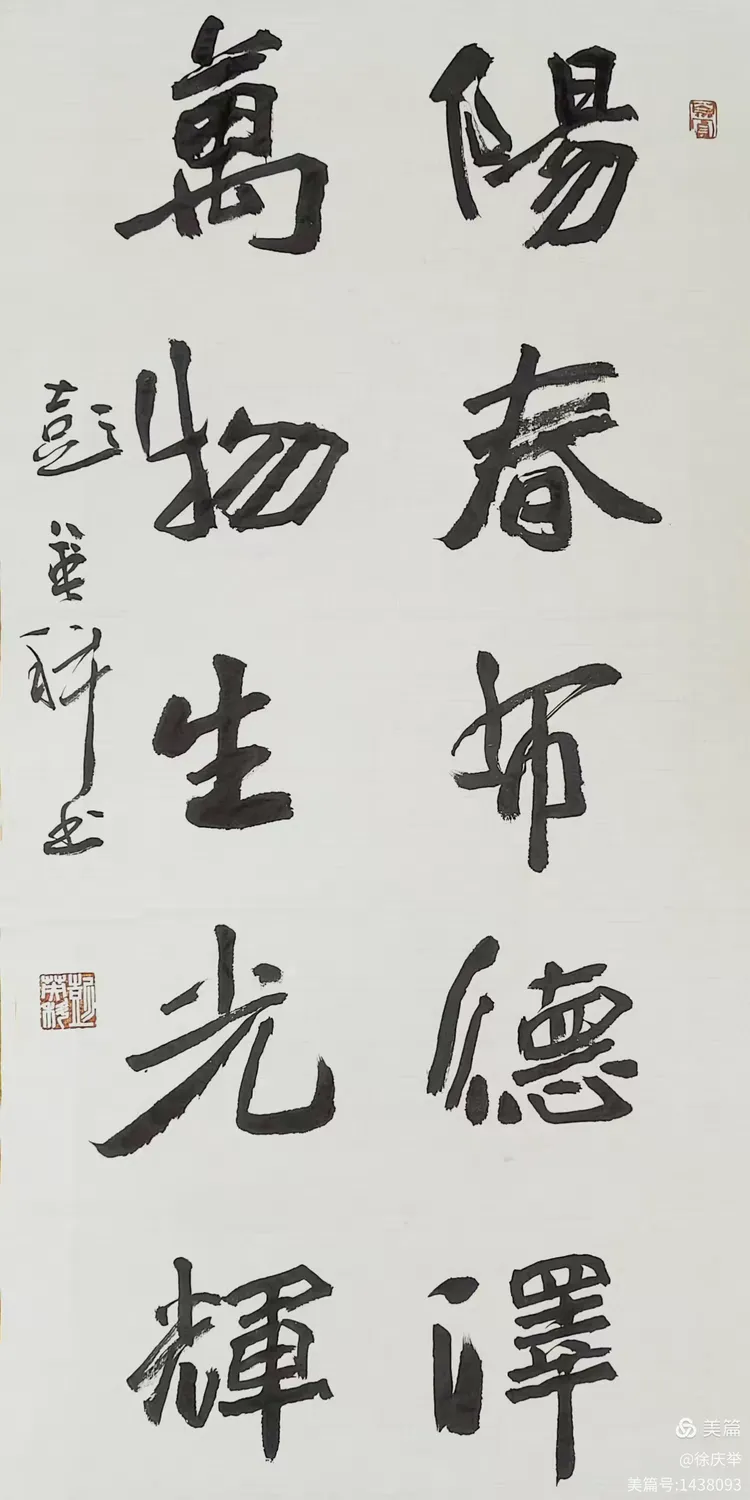 陽春布德澤
萬物生光輝
彭荣科书
美篇
@徐庆举
美篇号:1438093